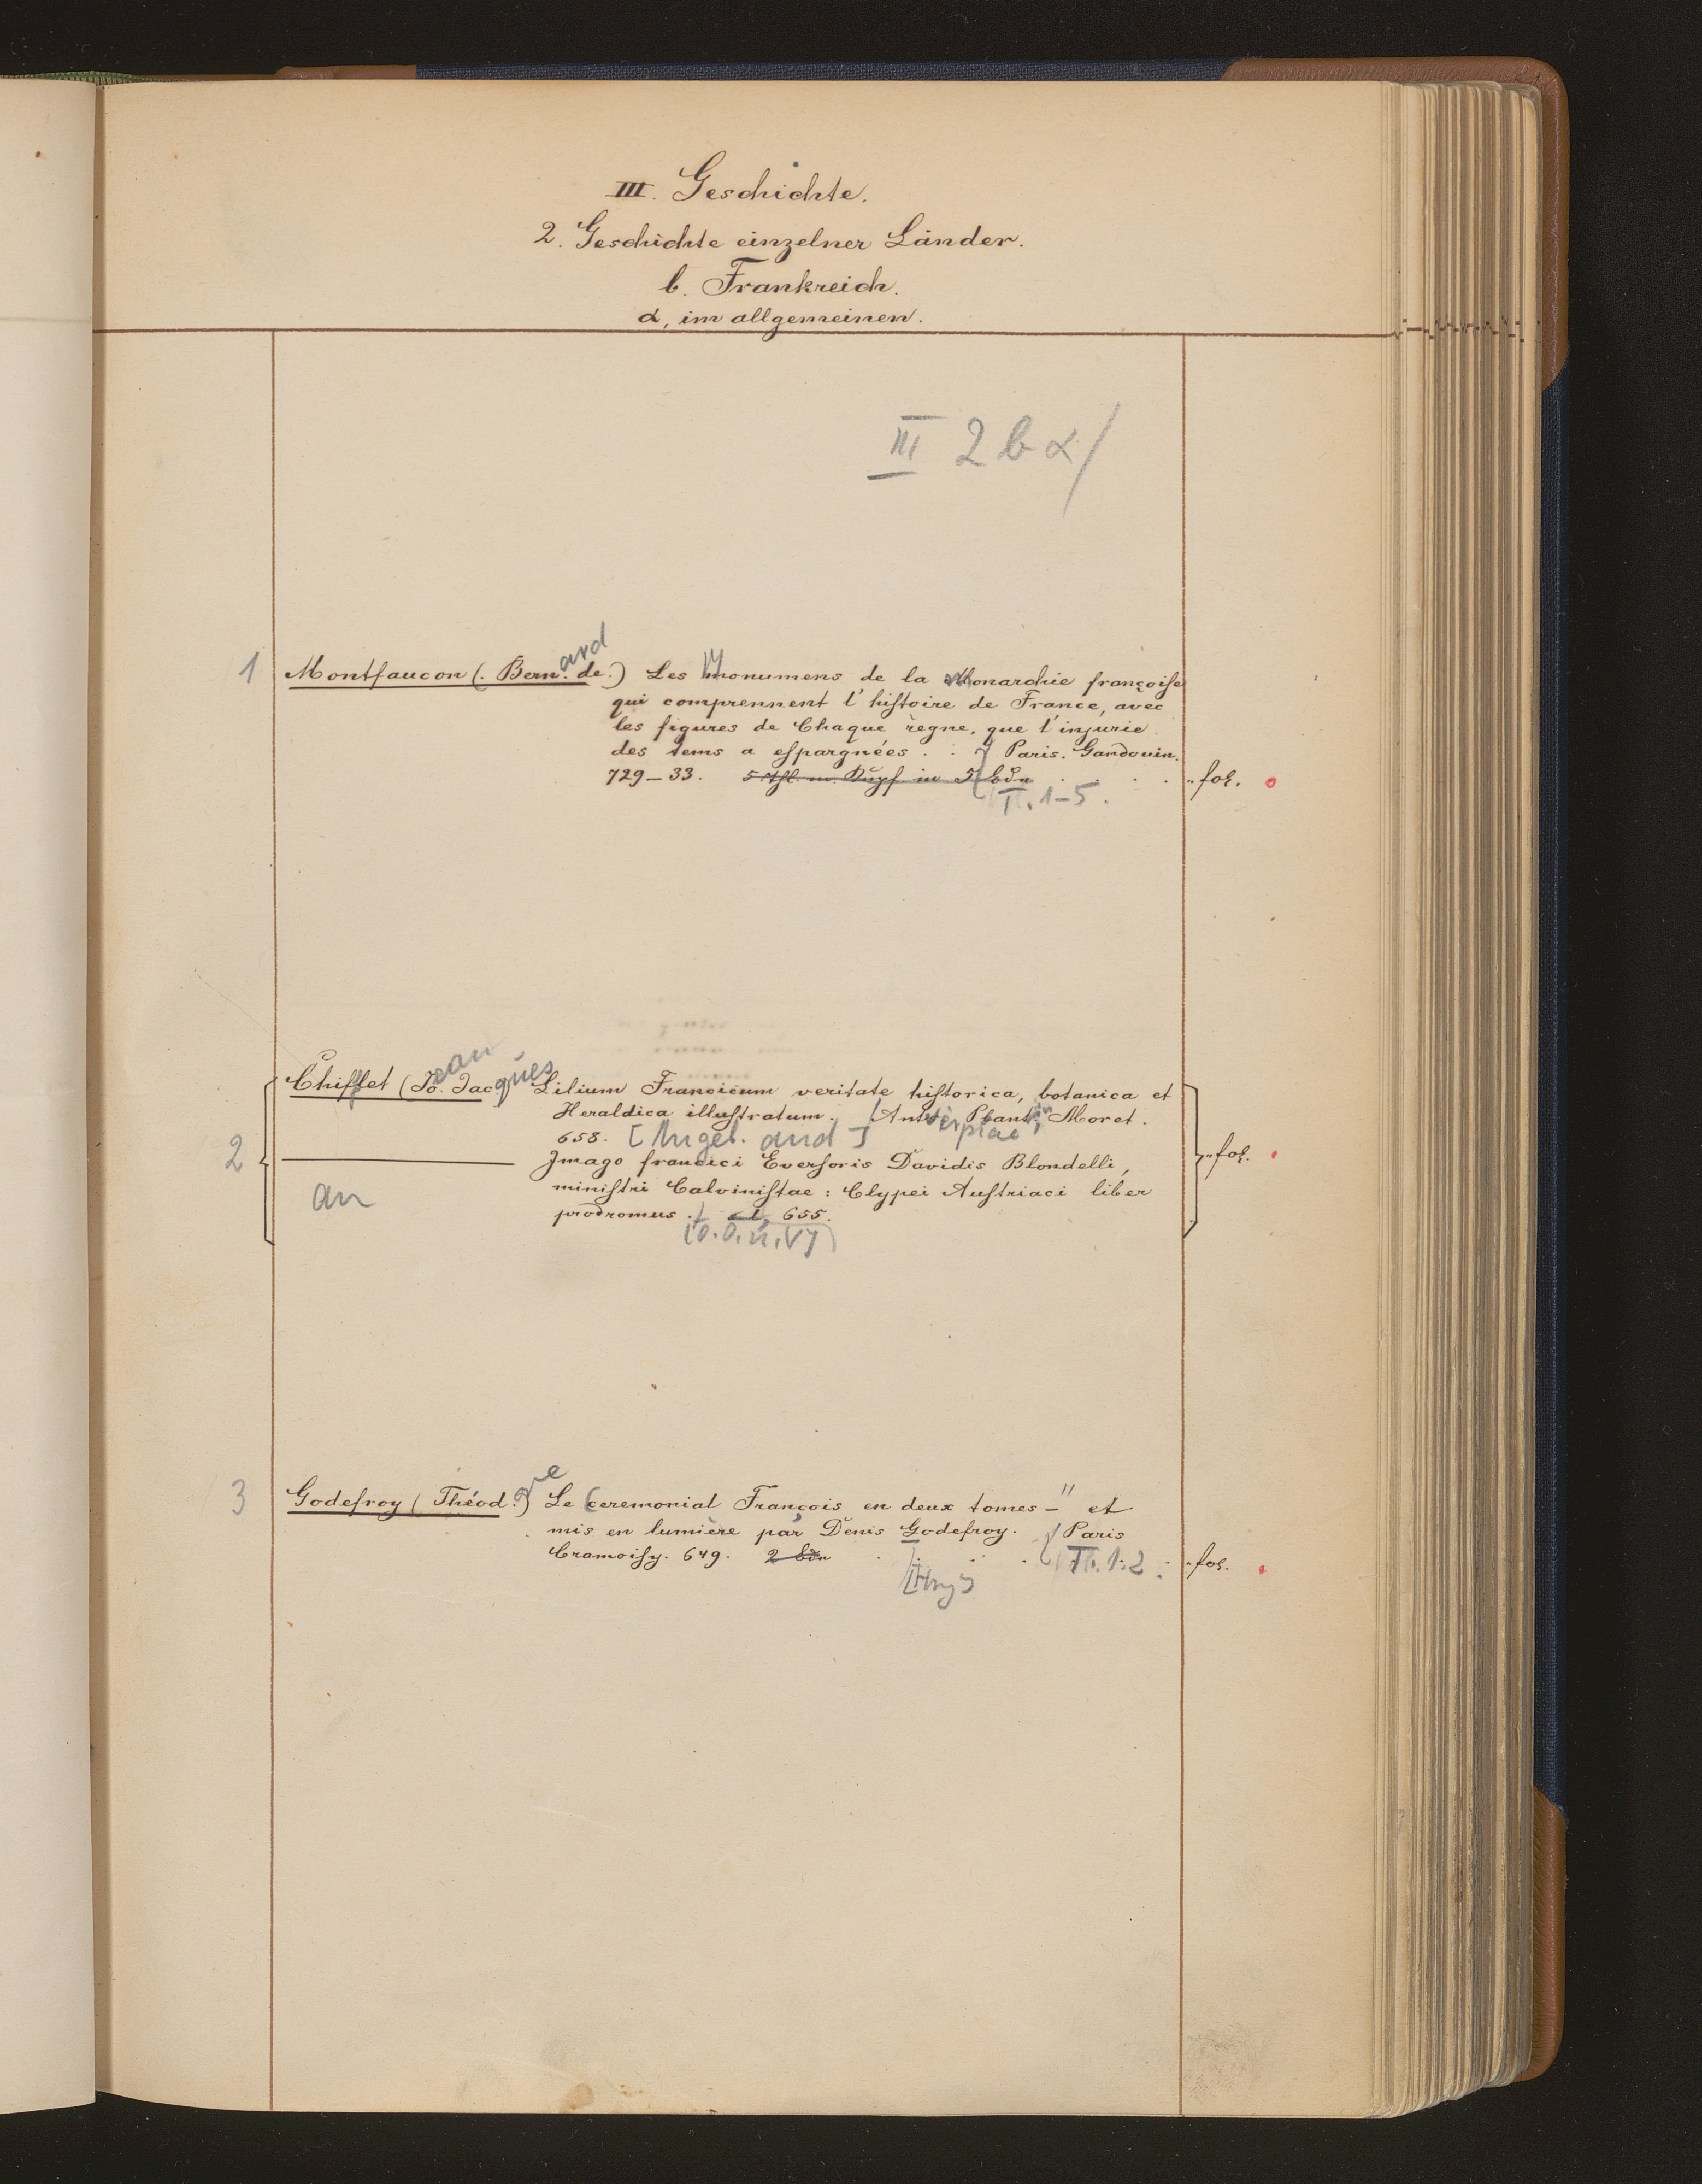 III. Geschichte.
2. Geschichte einzelner Länder.
b. Frankreich.
α, im allgemeinen.
III 2 b α/
1 Montfaucon (. Bern. ard de.) Les Monumens de la Monarchie françoise
qui comprennent l'histoire de France, avec
les figures de Chaque règne, que l'injurie
des tems a espargnées . . Paris. Gandouin.
729–33. 5 Thl. m. Kupf in 5 bdn . . . „fol.
T. 1–5.
Chifflet (Jo. ean Jacques Lilium Francicum veritate historica, botanica et
Heraldica illustratum. Antverpiae Plantin Moret.
658. [Angeb. and]
2 ——— Imago francici Eversoris Davidis Blondelli, „fol.
an ministri Calvinistae: Clypei Austriaci liber
prodromus . 655.
(O. O. u. V)
3 Godefroy (Théod. re) Le Ceremonial François en deux tomes – " et
mis en lumière par Denis Godefroy. Paris
Cramoisy. 649. 2 bdn . . . T. 1. 2 . „fol.